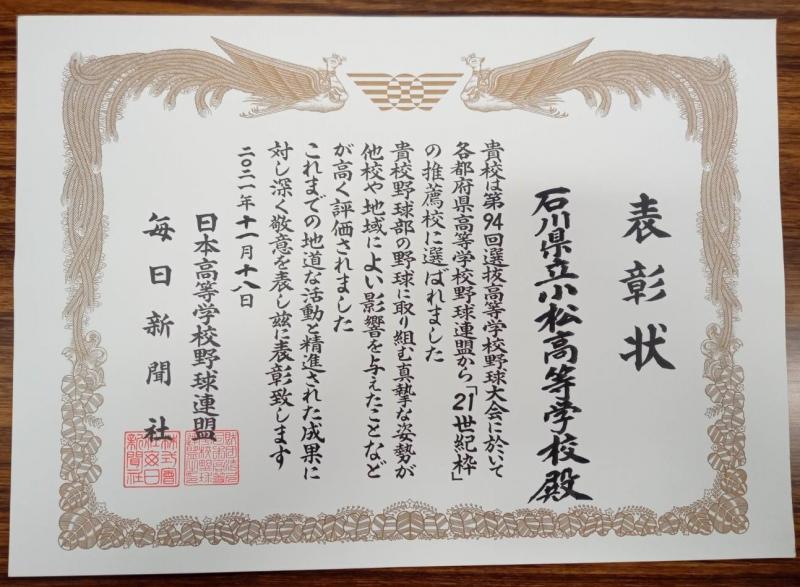 表彰状
石川県立小松高等学校殿
貴校は第94回選抜高等学校野球大会に於いて
各都府県高等学校野球連盟から「21世紀枠」
の推薦校に選ばれました
貴校野球部の野球に取り組む真摯な姿勢が
他校や地域によい影響を与えたことなど
が高く評価されました
これまでの地道な活動と精進された成果に
対し深く敬意を表し玆に表彰致します
二〇二一年十一月十八日
日本高等学校野球連盟
毎日新聞社